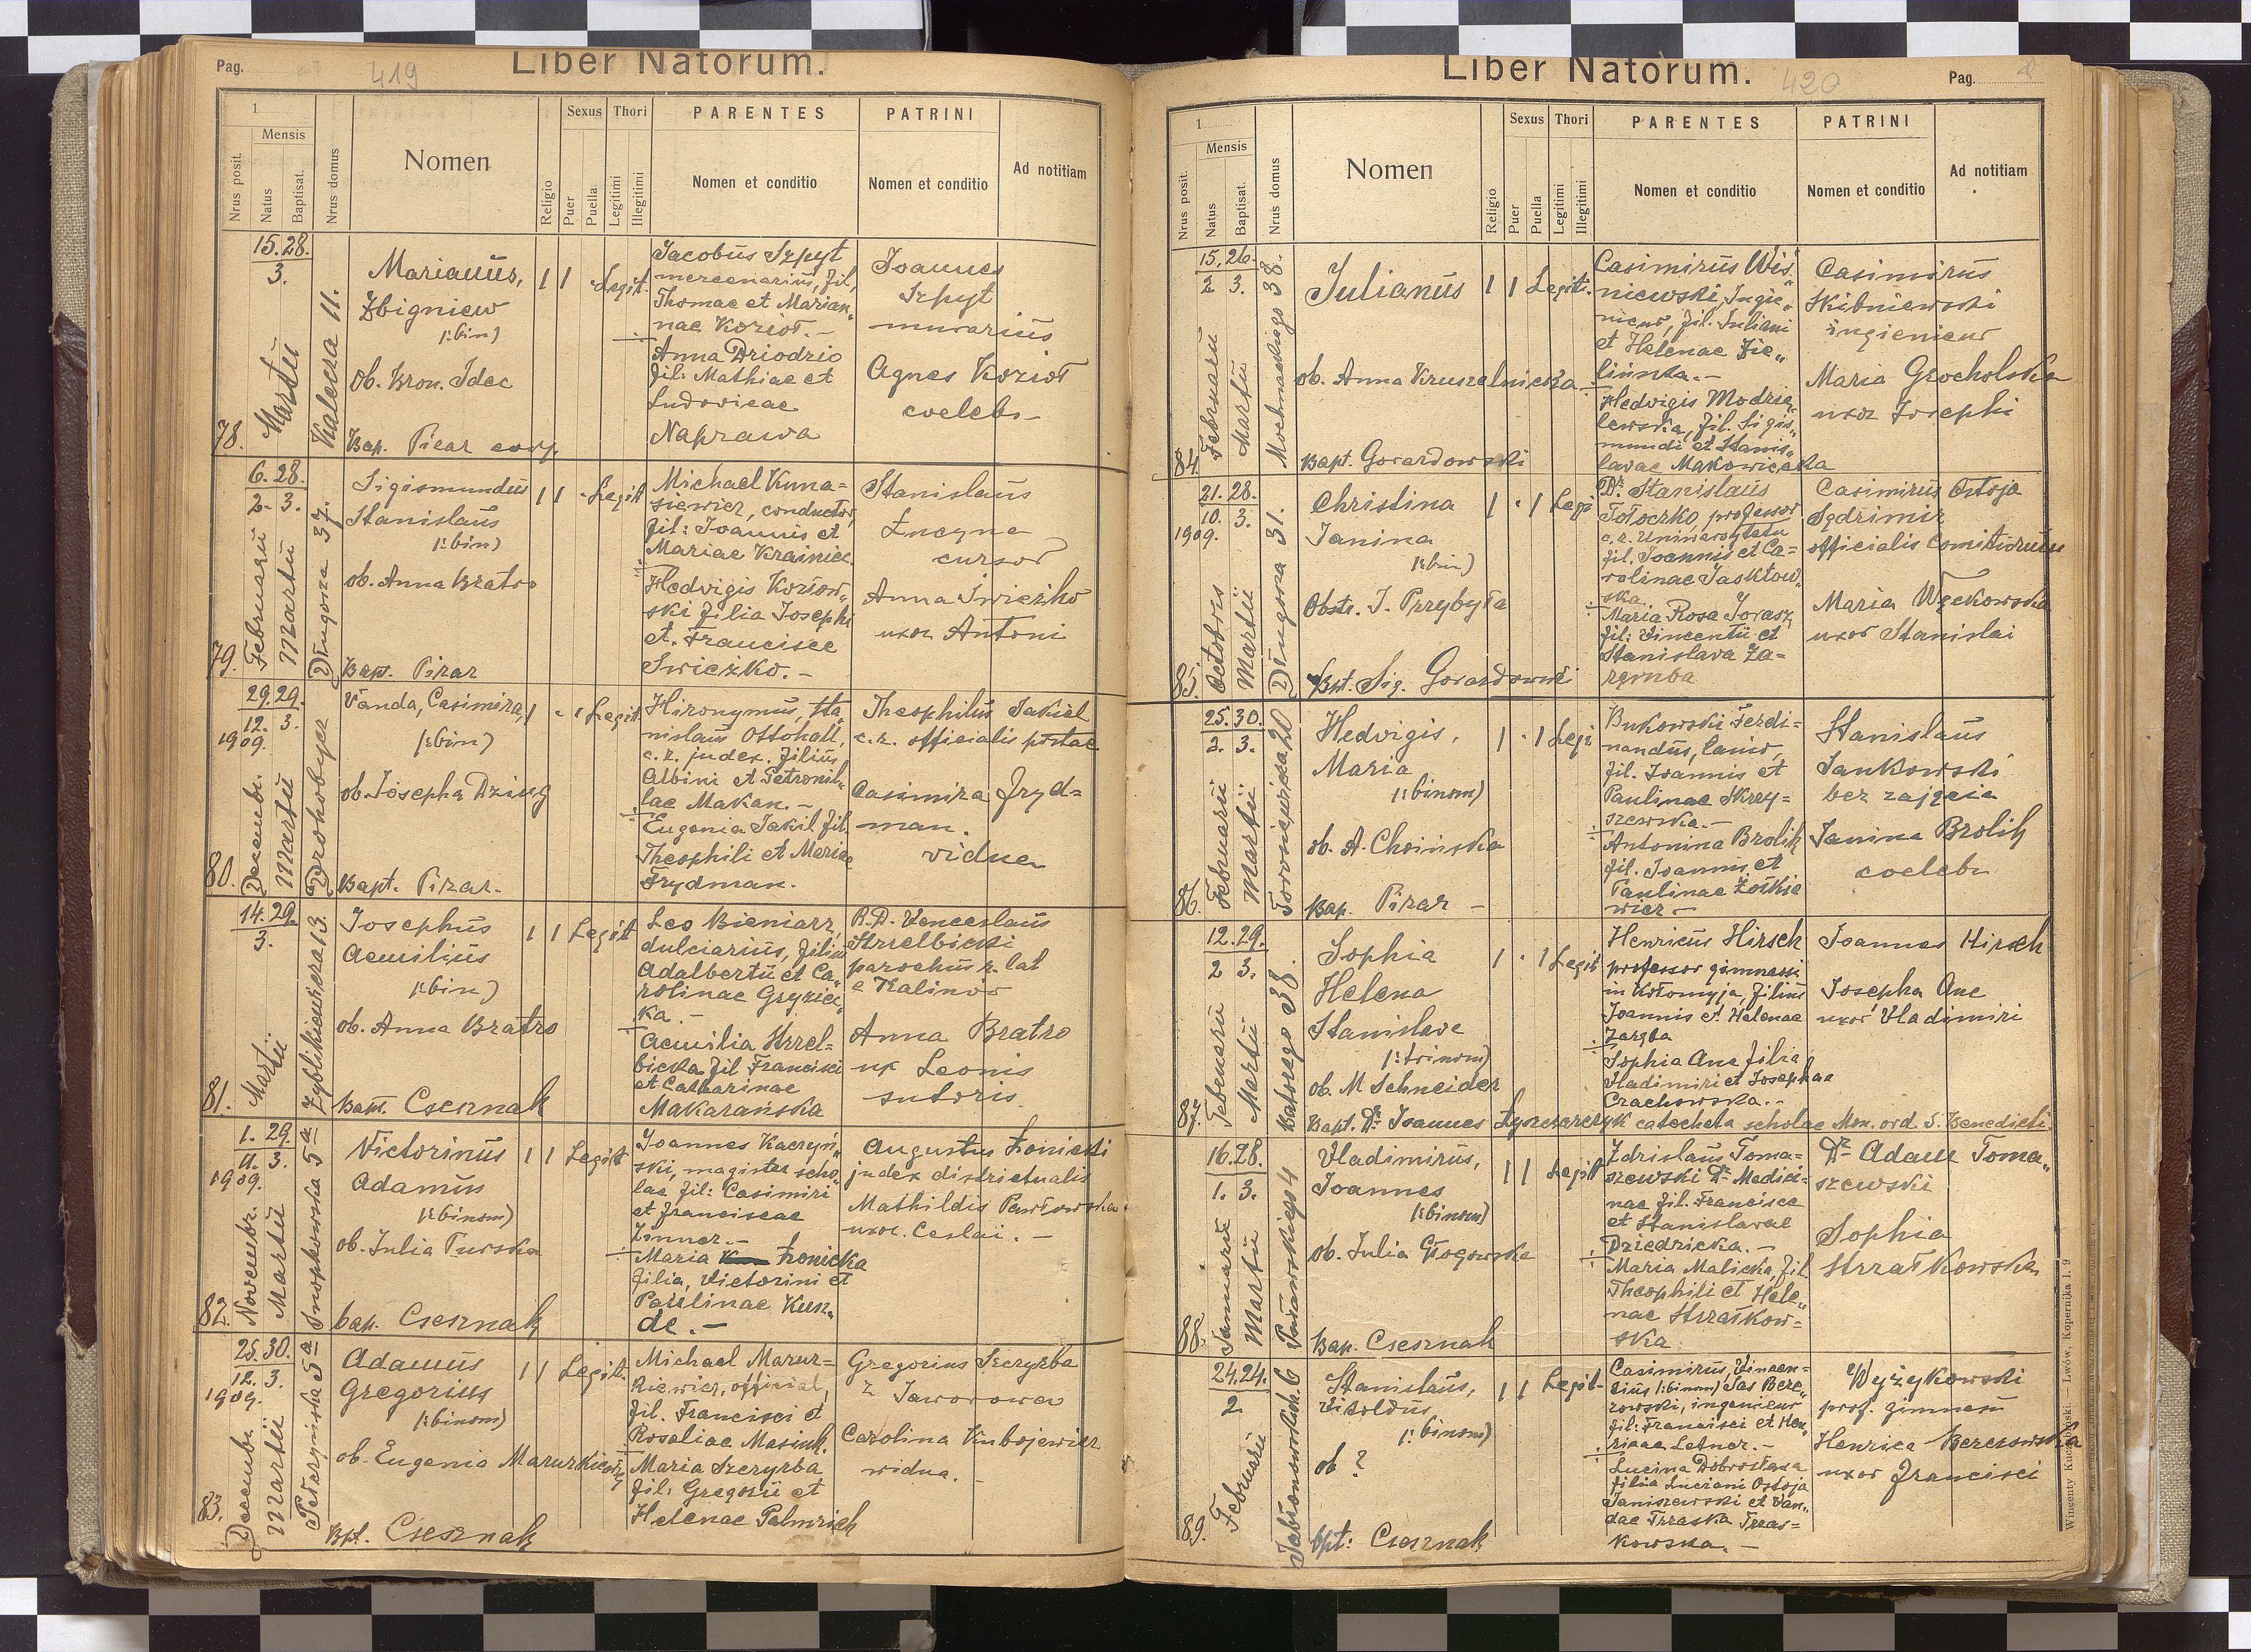 Pag.
419
Liber Natorum.
1
Mensis
Nrus posit.
Natus
Baptisat.
Nrus domus
Nomen
Religio
Sexus
Puer
Puella
Thori
Legitimi
Illegitimi
PARENTES
Nomen et conditio
PATRINI
Nomen et conditio
Ad notitiam
78.
15. 28.
3.
Martii
Kalecza 11.
Marianus,
Zbigniew
/:bin)
Ob. Bron. Idec
Bap. Pizar coop.
1 1 Legit.
Jacobus Szpyt
mercenarius, fil,
Thomae et Marian„
nae Kozioł.-
Anna Dziodzio
fil: Mathiae et
Ludovicae
Naprawa
Joannes
Szpyt
murarius
Agnes Kozioł
coelebs
79.
6. 28.
2. 3.
Februarii
Martii
Długosza 37.
Sigismundus
Stanislaus
/:bin)
ob. Anna Bratro
Bap. Pizar
1 1 Legit
Michael Kuna=
siewicz, conductor,
fil: Joannis et
Mariae Krainice
Hedvigis Kozłow„
ski filia Josephi
et Franciscae
Swieżko.-
Stanislaus
Lucyna
cursor
Anna Świeżko
uxor Antoni
80.
29. 29.
12. 3.
1909.
Decembr.
Martii
Drohobycz
Vanda, Casimira,
/:bin)
ob. Josepha Dzing
Bapt. Pizar.
1 - 1 Legit
Hironymus, Sta„
nislaus Ottohall,
c. r. judex. filius
Albini et Petronil„
lae Makan.-
Eugenia Jakil fil.
Theophili et Mariae
Frydman.
Theophilus Jakiel
c. r. officialis postae
Casimira Fryd=
man.
vidua
81.
14. 29.
3.
Martii.
Zyblikiewicza 13.
Josephus
Aemilius
/:bin)
ob. Anna Bratro
Bapt. Csesznak
1 1 Legit
Leo Bieniarz,
dulciarius, filius
Adalberti et Ca„
rolinae Gryzic„
ka.-
Aemilia Strzel=
bicka fil Francisci
et Catharinae
Makarańska
R. D. Venceslaus
Strzelbicki
parochus r. lat
e Kalinów
Anna Bratro
ux Leonis
sutoris.
82.
1. 29.
11. 3.
1909.
Novembr.
Martii
Snopkowska 5a
Victorinus
Adamus
/:binom)
ob. Julia Turska
bap. Csesznak
1 1 Legit
Joannes Kaczyń„
ski, magister scho„
lae fil: Casimiri
et Franciscae
Zinner.-
Maria Łonicka
filia, Victorini et
Paulinae Kun„
de.-
Augustus Łonicki
judex districtualis
Mathildis Pawłowska
uxor. Ceslai.-
83.
25. 30.
12. 3.
1909.
Decembr.
Martii
Pełczyńska 5a
Adamus
Gregorius
/:binom)
ob. Eugenia Mazurkiewicz
Bpt. Csesznak
1 1 Legit.
Michael Mazur=
kiewicz, official,
fil. Francisci et
Rosaliae Masiuk.
Maria Szczyrba
fil: Gregorii et
Helenae Palmrich
Gregorius Szczyrba
z Jaworowa
Carolina Kubojewicz
widua.-
Liber Natorum.
420
Pag.
1
Mensis
Nrus posit.
Natus
Baptisat.
Nrus domus
Nomen
Religio
Sexus
Puer
Puella
Thori
Legitimi
Illegitimi
PARENTES
Nomen et conditio
PATRINI
Nomen et conditio
Ad notitiam
84.
15. 26.
2 3.
Februarii
Martii
Mochnackiego 38.
Julianus
ob. Anna Kruszelnicka
Bapt. Gorazdowski
1 1 Legit.
Casimirus Wiś„
niewski, Ingie„
nieur, fil. Juliani
et Helenae Zie„
lińska.-
Hedvigis Modzie„
lewska, fil. Sigis„
mundi et Stanis„
lavae Makowiecka
Casimirus
Skibniewski
ingienieur
Maria Grocholska
uxor Josephi
85.
21. 28.
10. 3.
1909.
Octobris
Martii
Długosza 31.
Christina
Janina
/:bin)
Obstr. J. Przybyła
Bpt. Sig. Gorazdowski
1 . 1 Legi
Dr. Stanislaus
Tołoczko, professor
c. r. Universytatu
fil. Joannis et Ca=
rolinae Jasktow„
ska
Maria Rosa Jorasz
fil: Vincentii et
Stanislava Za=
rzemba
Casimirus Ostoja
Sędzimir
officialis Comitiorum
Maria Węckowska
uxor Stanislai
86.
25. 30.
2. 3.
Februarii
Martii
20
Hedvigis,
Maria
/:binom)
ob. A. Choińska
Bap. Pizar -
1 . 1 Legi
Bukowski Ferdi=
nandus, lanio,
fil. Joannis et
Paulinae Skrzy=
szewska.-
Antonina Brolik
fil. Joannis et
Paulinae Żołkie
wicz -
Stanislaus
Jankowski
bez zajęcia
Janina Brolik
coelebs
87.
12. 29.
2 3.
Februarii
Martii
Batorego 38.
Sophia
Helena
Stanislava
/:trinom)
ob. M Schneider
Bapt. Dr. Joannes Łyszczarczyk catecheta scholae Mon. ord. S. Benedicti.
1 . 1 Legit
Henricus Hirsch
professor gimnasii
in Kołomyja, filius
Joannis et Helenae
Zaręba
Sophia Anc filia
Vladimiri et Josephae
Czachowska.-
Joannes Hirsch
Josepha Anc
uxor Vladimiri
88.
16. 28.
1. 3.
Januarii
Martii
4
Vladimirus,
Joannes
/:binom)
ob. Julia Głogowska
Bap. Csesznak
1 1 Legit
Zdzislaus Toma=
szewski Dr. Medici=
nae fil. Francisce
et Stanislavae
Dziedzicka.-
Maria Malicka, fil.
Theophili et Hele„
nae Strzałkow=
ska
Dr. Adam Toma„
szewski
Sophia
Strzałkowska
89.
24. 24.
2.
Februarii
Jabłonowskich 6
Stanislaus,
Vitoldus
/: binom)
ob ?
bpt: Csesznak
1 1 Legit-
Casimirus, Vincen=
tius /:binom) Sas Bere„
zowski, ingenieur
fil: Francisci et Hen„
ricae Letner.-
Lucina Dobrosława
filia Luciani Ostoja
Janiszewski et Van„
dae Trzaska Trzas=
kowska.-
Wyżykowski
prof. gimnasii
Henrica Berezowska
uxor Francisci
Wincenty Kuczabiński — Lwów, Kopernika l. 9